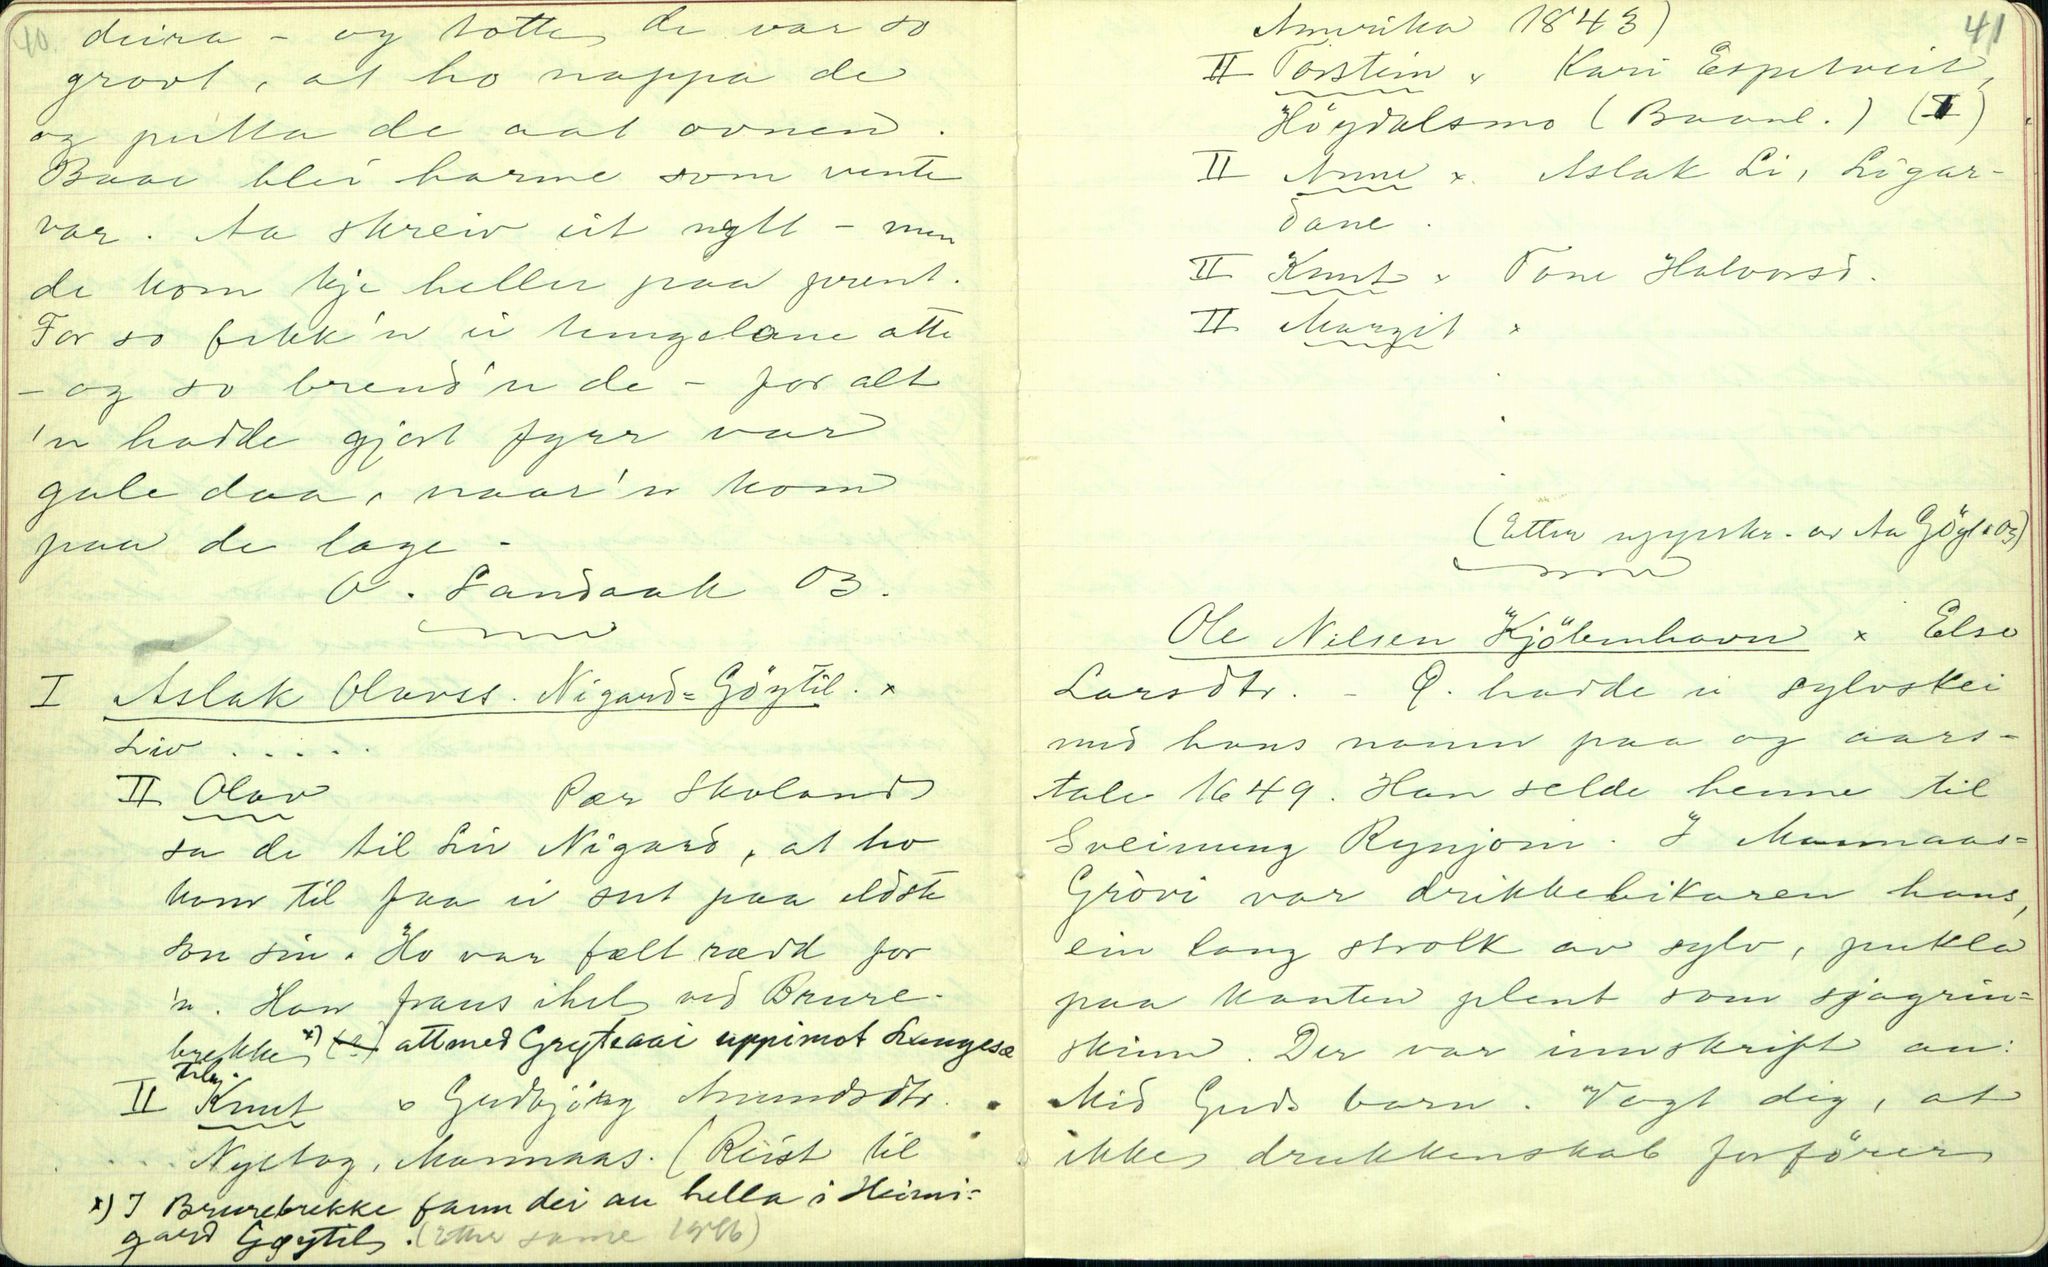 40.
deira - og totte de var so
grovt, at ho nappa de
og putta de aat ovnen.
Baae blei harme som vente
var. Aa skreiv eit nytt - men
de kom kje heller paa prent.
For so fekk'n ei tungelane atte
- og so brend'n de - for alt
'n hadde gjort fyrr var
gale daa, naar'n kom
paa de lage -
O. Sandaak 03.
I Aslak Olavss. Nigard=Göytil. x
Liv . . . . .
II Olav Pær Skoland
sa de til Liv Nigard, at ho
kom til faa ei sut paa eldste
son sin. Ho var fælt rædd for
'n. Han fraus ihel ved Brure-
brekke x) attmed Grytaaai uppimot Langesæ
II Knut x Gudbjörg Amundsdtr.
Nystog, Mannaas. (Reist til
x) I Brurebrekke fann dei au hella i Heimi=
gard Gøytil. (Etter same 1916)
41
Amerika 1843)
II Torstein x Kari Espetveit,
Höydalsmo (Baanl.) (I)
II Anne x Aslak Li, Ligar-
dane.
II Knut x Tone Halvorsd.
II Margit x
(Etter uppskr. av Aa Göyt. 03)
Ole Nilsen Kjöbenhavn x Else
Larsdtr. - O. hadde ei sylvskei
med hans namn paa og aars-
tale 1649. Han selde henne til
Sveinung Rynjom. I Mannaas=
Grövi var drikkebikaren hans,
ein lang strolk av sylv, prikla
paa kanten plent som sjagrin=
skinn. Der var innskrift au:
Mid Guds barn. Vogt dig, at
ikke drukkenskab forförer